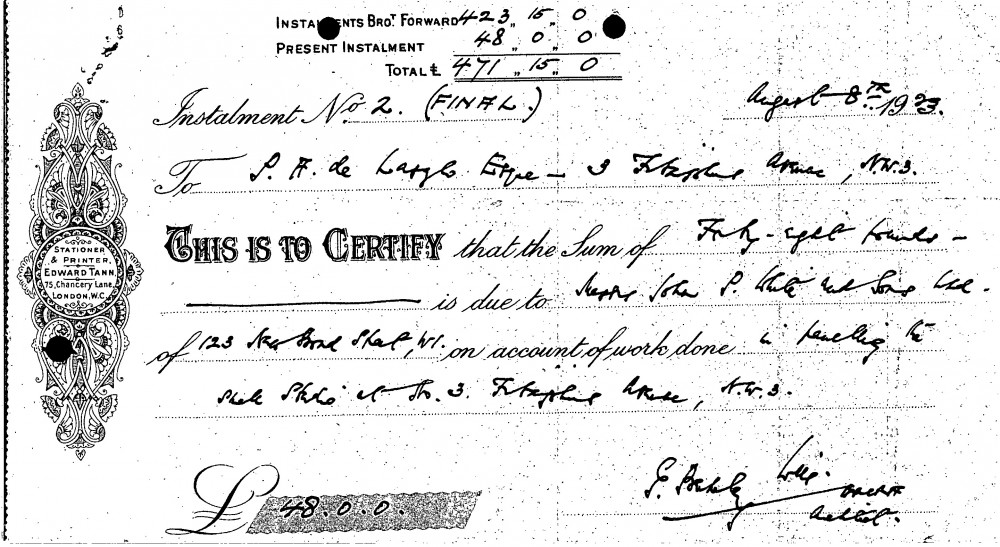 INSTALMENTS BROT FORWARD 423 " 15 " 0
PRESENT INSTALMENT 48 " 0 " 0
TOTAL £ 471 " 15 " 0
Instalment No 2. (FINAL.) August 8TH 1923.
To P. A. de Laszlo Esque - 3 Fitzjohns Avenue, N.W.3.
THIS IS TO CERTIFY that the Sum of Forty-eight Pounds -
is due to Messrs John P. White and Sons Ltd.
of 123 New Bond Street, W1. on account of work done in panelling the
Studio at No. 3. Fitzjohns Avenue, N.W.3.
STATIONER
& PRINTER,
EDWARD TANN,
75, Chancery Lane,
LONDON, W.C.
£ 48.0.0.